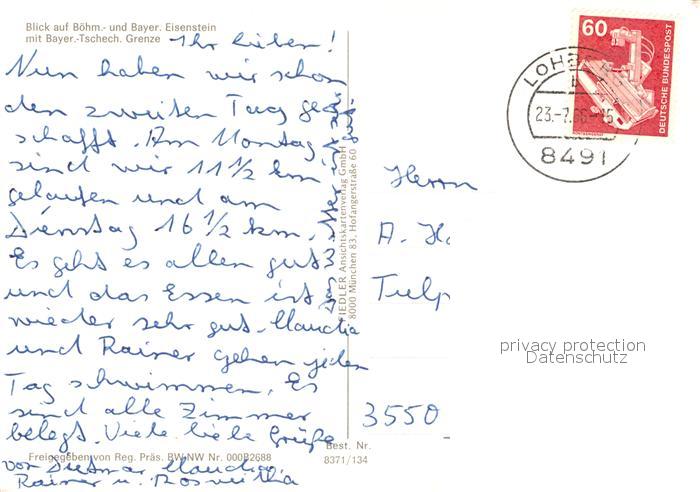 Blick auf Böhm.- und Bayer. Eisenstein
mit Bayer.-Tschech. Grenze
Ihr Lieben!
Nun haben wir schon
den zweiten Tag ge-
schafft. Am Montag
sind wir 11 1/2 km
gelaufen und am
Dienstag 16 1/2 km.
Es geht es allen gut
und das Essen ist
wieder sehr gut. Claudia
und Rainer gehen jeden
Tag schwimmen. Es
sind alle Zimmer
belegt. Viele liebe Grüße
von Dietmar Claudia,
Rainer u. Roswitha
Freigegeben von Reg. Präs. BW NW Nr. 000B2688
Best. Nr.
8371/134
FIEDLER Ansichtskartenverlag GmbH
8000 München 83, Hofangerstraße 60
60
DEUTSCHE BUNDESPOST
23.-7.86-15
8491
Herrn
A. H.
Tulp
3550
privacy protection
Datenschutz